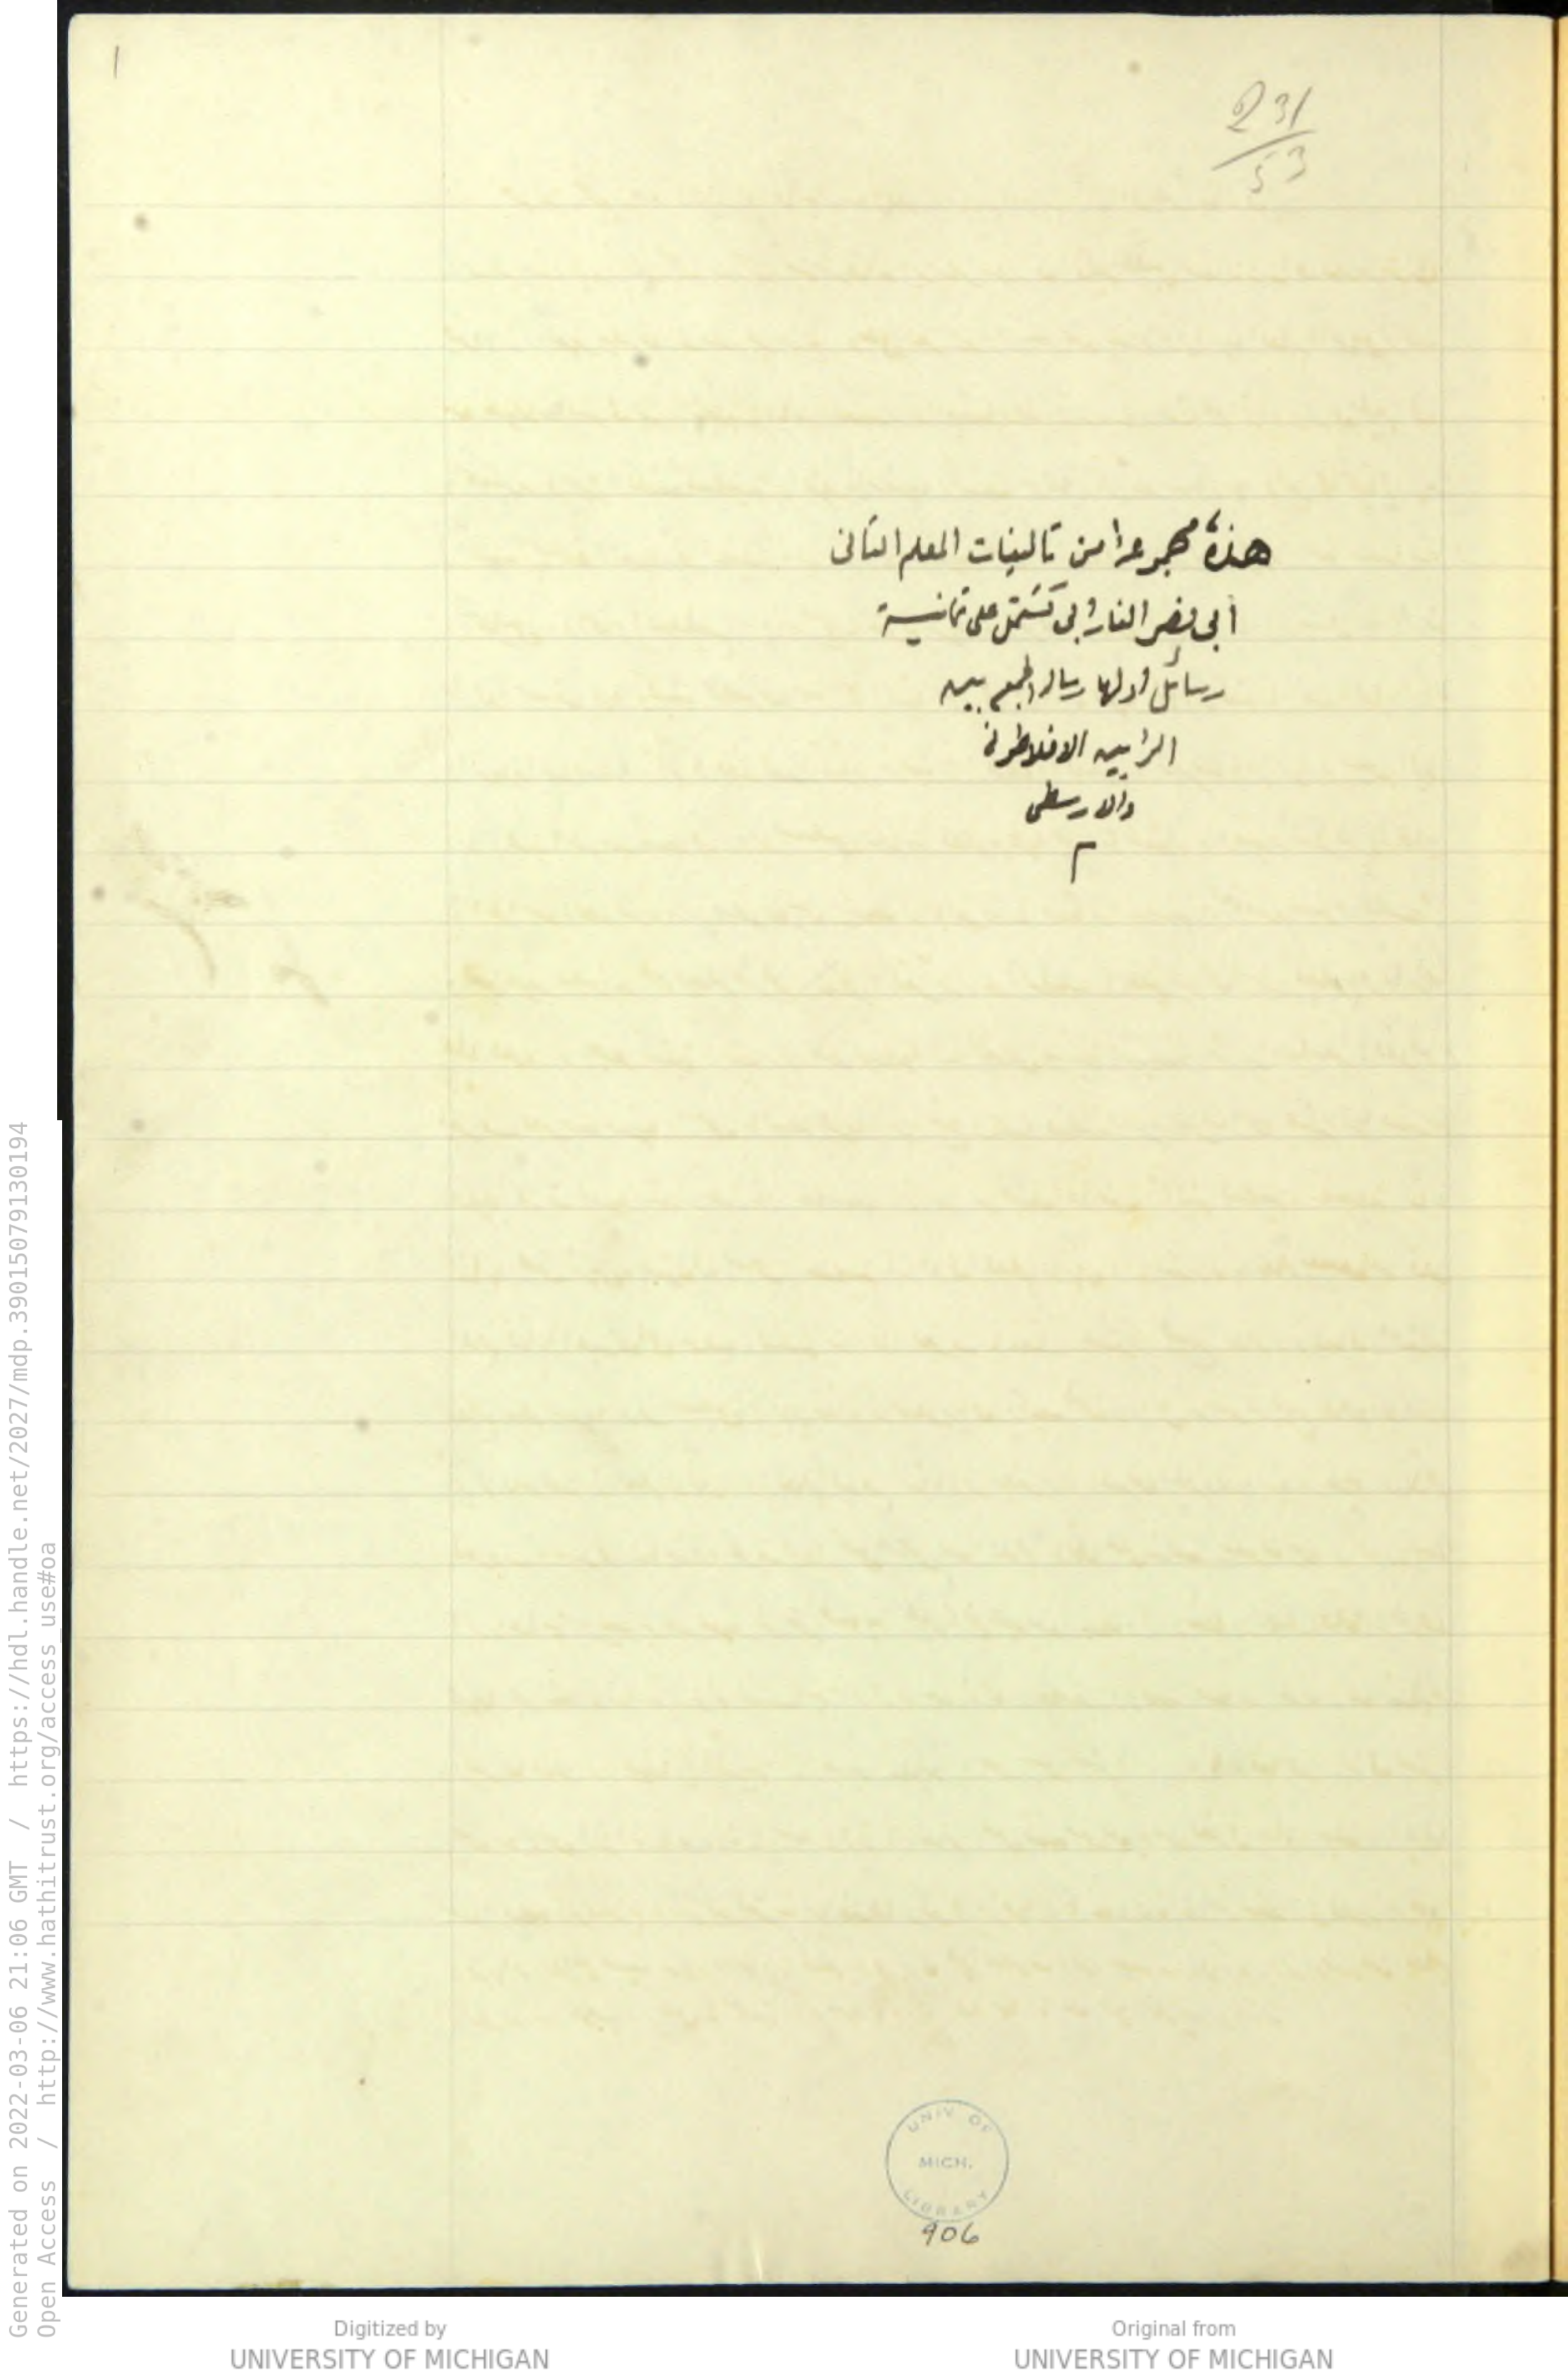 1
231
53
هذه مجموعة من تاليفات المعلم الثانى
أبى نصر الفارابى تشتمل على ثمانية
رسائل اولها رسالة الجمع بين
الرايين الافلاطونى
والارسطى
م
UNIV. OF
MICH.
LIBRARY
906
Generated on 2022-03-06 21:06 GMT / https://hdl.handle.net/2027/mdp.39015079130194
Open Access / http://www.hathitrust.org/access_use#oa
Digitized by
UNIVERSITY OF MICHIGAN
Original from
UNIVERSITY OF MICHIGAN